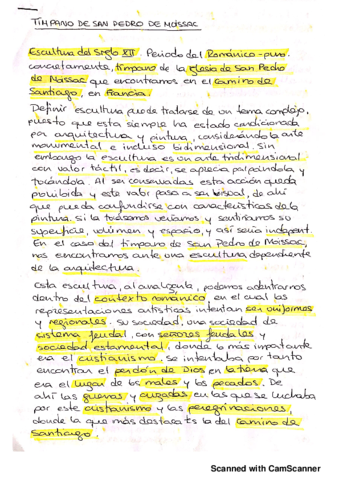 TÍMPANO DE SAN PEDRO DE MOISSAC
Escultura del Siglo XII. Periodo del Románico-puro.
concretamente, tímpano de la iglesia de San Pedro
de Moissac que encontramos en el camino de
Santiago, en Francia.
Definir escultura puede tratarse de un tema complejo,
puesto que esta siempre ha estado condicionada
por arquitectura y pintura, considerándola arte
monumental e incluso bidimensional. Sin
embargo la escultura es un arte tridimensional
con valor táctil, es decir, se aprecia palpándola y
tocándola. Al ser conservadas esta acción queda
prohibida y este valor pasa a ser visual, de ahí
que pueda confundirse con características de la
pintura. si la tocásemos veríamos y sentiríamos su
superficie, volumen y espacio, y así sería independ.
En el caso del tímpano de San Pedro de Moissac,
nos encontramos ante una escultura dependiente
de la arquitectura.
Esta escultura, al analizarla, podemos adentrarnos
dentro del contexto románico, en el cual las
representaciones artísticas intentan ser uniformes
y regionales. Su sociedad, una sociedad de
sistema feudal, con señores feudales y
sociedad estamental, donde lo más importante
era el cristianismo. Se intentaba por tanto
encontrar el perdón de Dios en la tierra que
era el lugar de los males y los pecados. De
ahí las guerras y cruzadas en las que se luchaba
por este cristianismo y las peregrinaciones,
donde la que más destaca es la del Camino de
Santiago.
Scanned with CamScanner